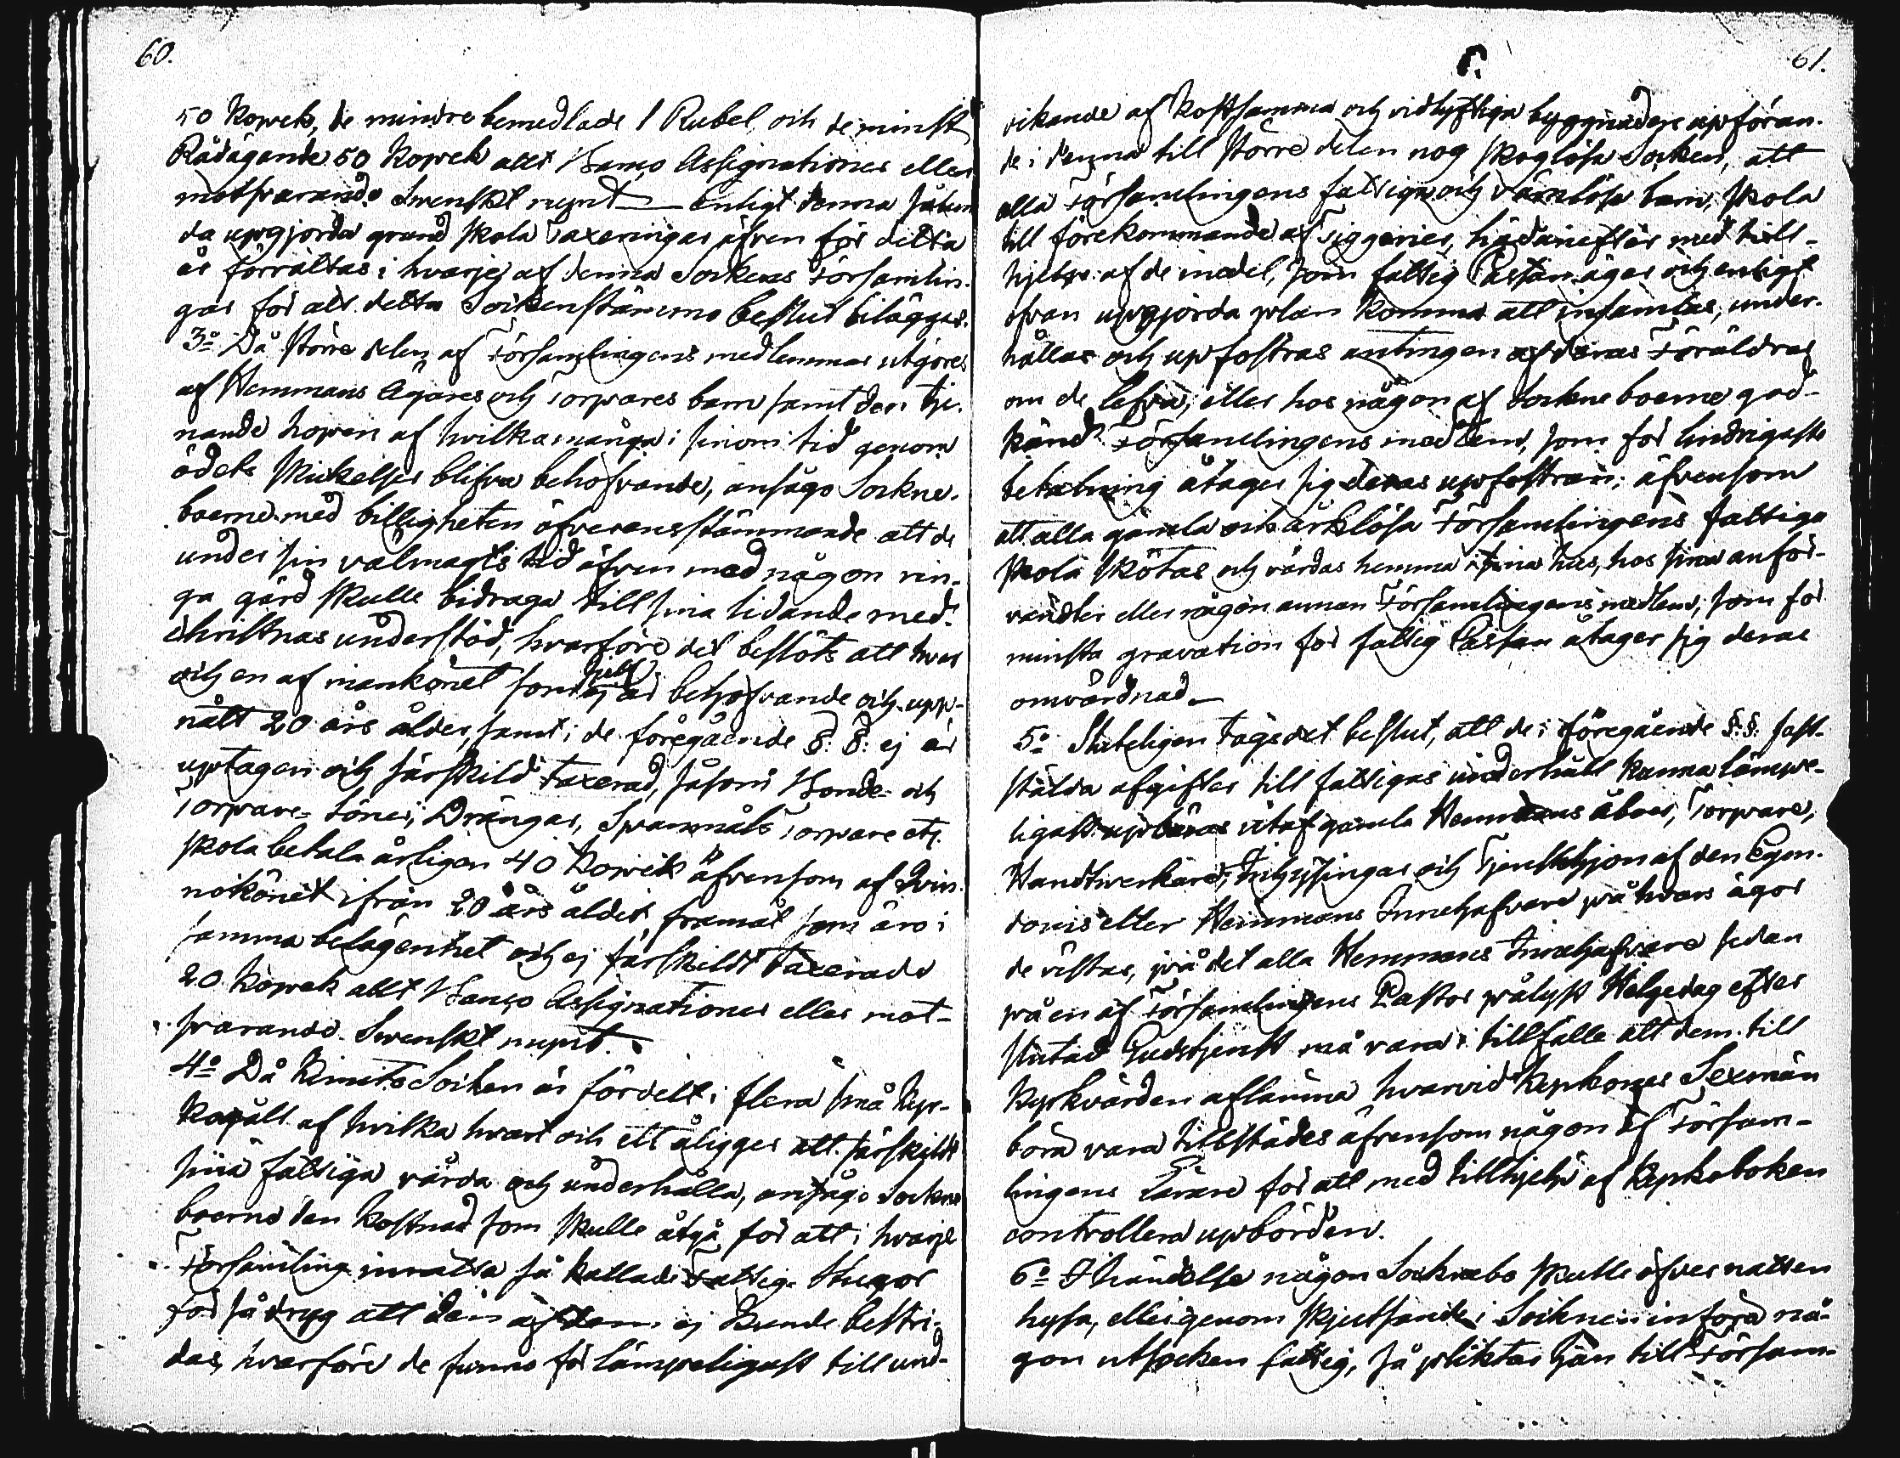 60.
50 Kopek, de mindre bemedlade 1 Rubel och de minst
Rådägande 50 Kopek allt Banco Assignationer eller
motsvarande Swenskt mynt — Enligt denna sålun
da upgjorda grund skola Taxeringar äfven för detta
år förrättas i hvarje af denna Sockens Församlin-
gar för att detta Sockenstämmo beslut biläggas.
3o Då större delen af Församlingens medlemmar utgöres
af Hemmans Ägares och Torpares barn samt den tje-
nande hopen af hvilka många i sinom tid genom
ödets skickelser blifva behöfvande, ansågo Sockne-
boerne med billigheten öfverensstämmande att de
under sin välmagts tid äfven med någon rin-
ga gärd skulle bidraga till sina lidande med-
christnas understöd, hvarföre det beslöts att hvar
och en af mankönet som sjelf ej är behöfvande och upp-
nått 20 års ålder, samt i de föregående §. §. ej är
uptagen och särskild Taxerad, såsom Bonde- och
Torpare- Söner, Drängar, Spannmåls Torpare etc.
skola betala årligen 40 Kopek äfvensom af Qvin-
nokönet ifrån 20 års ålder, framåt som äro i
samma belägenhet och ej särskildt Taxerade
20 Kopek allt Banco Assignationer eller mot-
svarande Swenskt mynt.
4o Då Kimito Socken är fördelt i flera små Kyr-
kogäll af hvilka hvart och ett åligger att särskildt
sina fattiga vårda och underhålla, ansågo Sockne
boerne den kostnad som skulle åtgå för att i hvarje
Församling inrätta så kallade Fattig- Stugor
för så dryg att den af dem ej kunde bestri-
das, hvarföre de funno för lämpeligast till und-
61.
vikande af kostsamma och vidlyftiga byggnaders upföran-
de i denna till större delen nog skoglösa Socken, att
alla Församlingens fattiga och värnlösa barn, skola
till förekommande af Tiggerier, hädanefter med till-
hjelp af de medel, som fattig Cassan äger och enligt
ofvan upgjorda plan komma att insamlas, under-
hållas och upfostras antingen af deras Föräldrar
om de lefva, eller hos någon af Sockneboerne god-
känd Församlingens medlem, som för lindrigaste
betalning åtager sig deras upfostran; äfvensom
att alla gamla och värklösa Församlingens fattiga
skola skötas och vårdas hemma i sina hus, hos sina anför-
vandter eller någon annan Församlingens medlem, som för
minsta gravation för fattig Cassan åtager sig deras
omvårdnad —
5o Sluteligen togs det beslut, att de i föregående §. §. fast-
stälda afgifter till fattigas underhåll kunna lämpe-
ligast upbäras utaf gamla Hemmans åboer, Torpare,
Handtwerkare, Inhysingar och Tjensthjon af den Egen-
doms eller Hemmans Innehafvare på hvars ägor
de vistas, på det alla Hemmans Innehafvare sedan
på en af Församlingens Pastor pålyst Helgedag efter
slutad Gudstjenst må vara i tillfälle att dem till
Kyrkvärden aflämna hvarvid Kyrkones Sexmän
böra vara tillstädes äfvensom någon af Försam-
lingens Lärare för att med tillhjelp af Kyrkoboken
controllera upbörden.
6o I händelse någon Socknebo skulle öfver natten
hysa, eller genom skjutsande i Socknen införa nå-
gon utsocken fattig, så pliktar han till Försam-